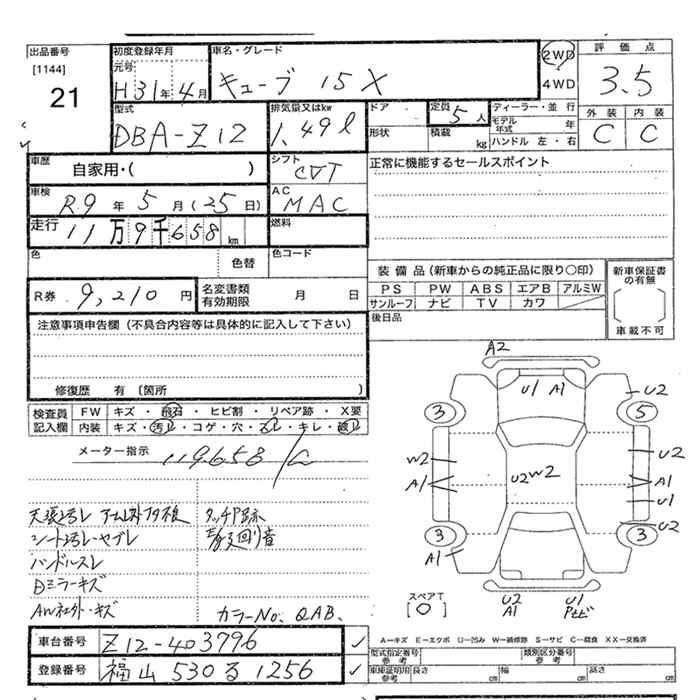 出品番号
[1144]
21
初度登録年月
元号
H31年4月
車名・グレード
キューブ 15X
2WD
4WD
評価点
3.5
外装 内装
C C
型式
DBA-Z12
排気量又はkw
1.49ℓ
ドア
形状
定員
5人
積載
kg
ディーラー・並行
モデル年式 年
ハンドル 左・右
車歴
自家用・( )
シフト
CVT
正常に機能するセールスポイント
車検
R9年5月(25日)
AC
MAC
走行
11万9千658km
燃料
色
色替
色コード
R券 9,210円
名変書類有効期限 月 日
装備品(新車からの純正品に限り○印)
PS PW ABS エアB アルミW
サンルーフ ナビ TV カワ
新車保証書の有無
車載不可
後日品
注意事項申告欄(不具合内容等は具体的に記入して下さい)
修復歴 有〔箇所 〕
検査員記入欄
FW キズ・飛石・ヒビ割・リペア跡・X要
内装 キズ・汚れ・コゲ・穴・スレ・キレ・破れ
メーター指示
119,658
A2
U1 A1
U2
3 5
W2
A1
U2 W2
U2
A1
U1
U2
3 3
A1
U2
A1
U1
スペアT
[○]
天張汚レ
シート汚レ・ヤブレ
ハンドルスレ
Dミラーキズ
AW社外・キズ
タッチP跡
カラーNo. QAB.
A―キズ E―エクボ U―凹み W―補修跡 S―サビ C―腐食 XX―交換済
車台番号 Z12-403796
登録番号 福山 530 る 1256
型式指定番号
参考
類別区分番号
参考
車庫証明用
参考
長さ cm 幅 cm 高さ cm